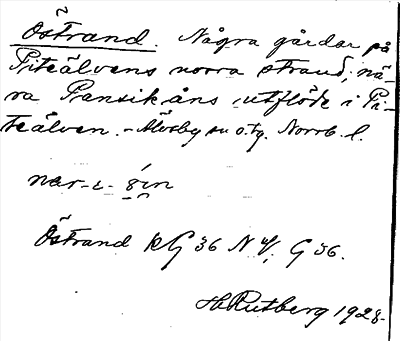 Östrand. Några gårdar på
Piteälvens norra strand, nä-
ra Pansikåns utflöde i Pi-
teälven. - Älvsby sn o. tg. Norrb. l.
Östrand KG 36 N v/. G 36.
H. Rutberg 1928.